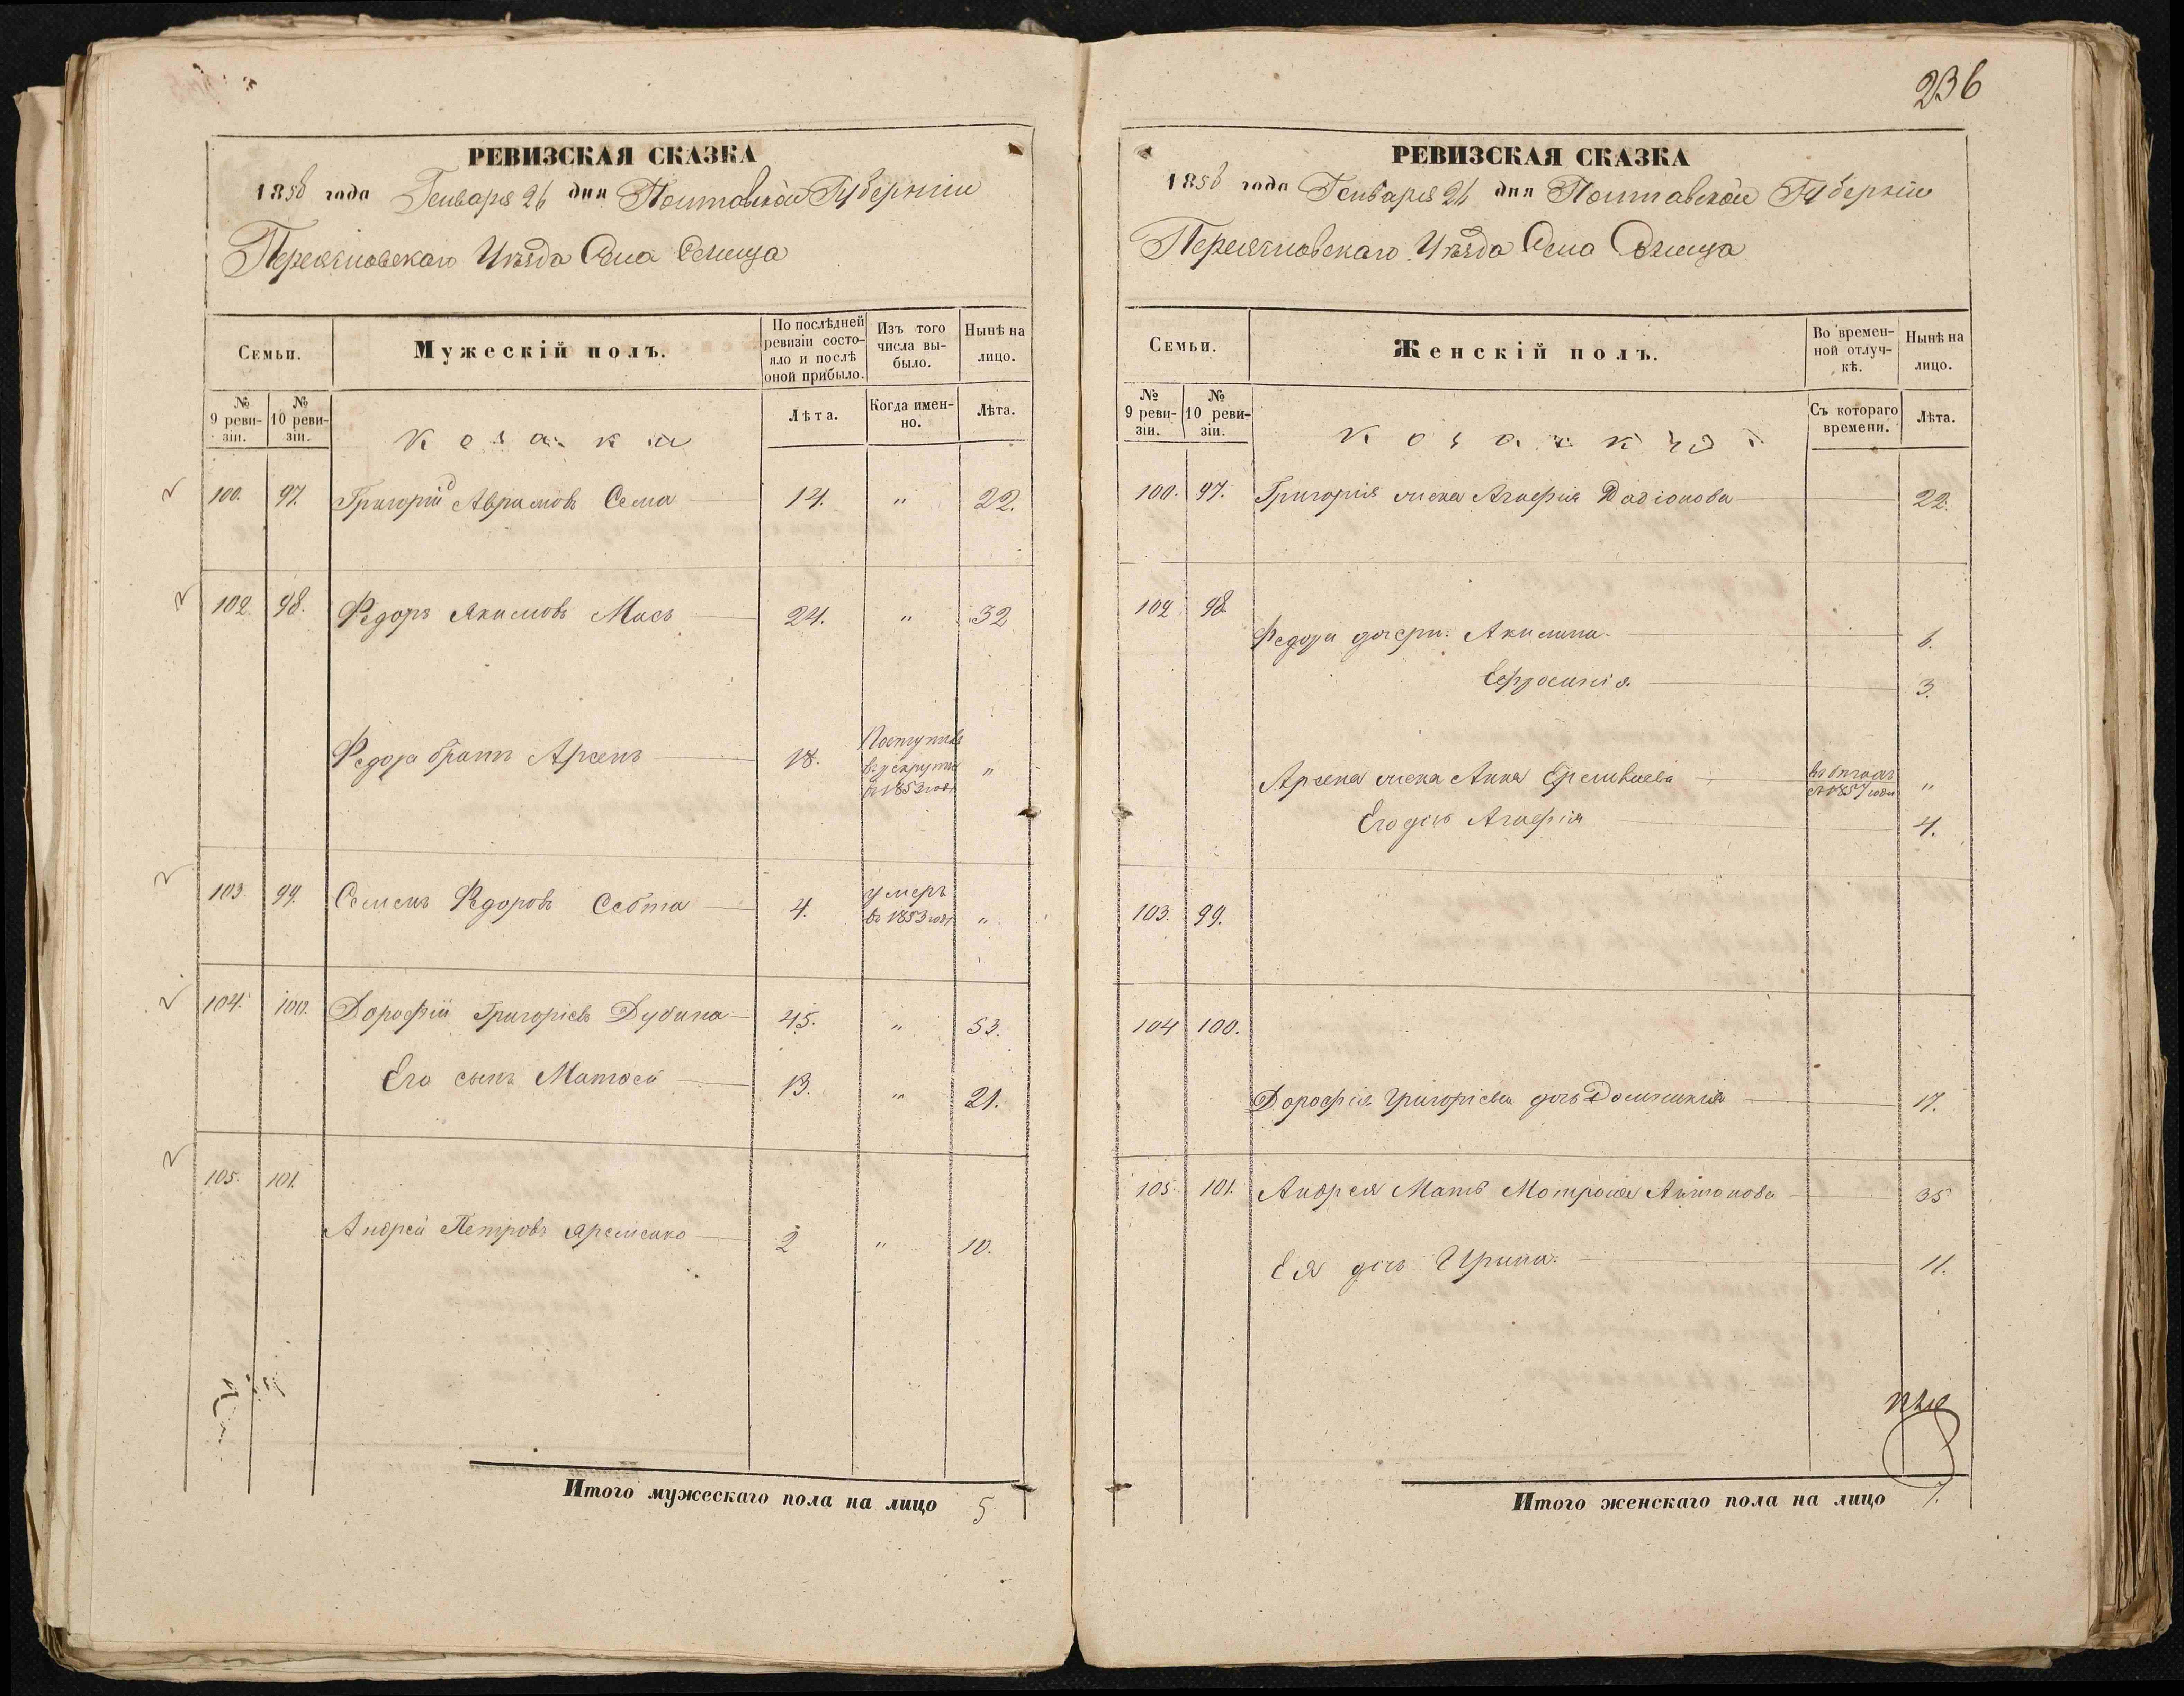 236
РЕВИЗСКАЯ СКАЗКА
1858 года Генваря 26 дня Полтавской Губерніи
Переяславскаго Уѣзда Села
Семьи.
Мужескій полъ.
По послѣдней ревизіи состояло и послѣ оной прибыло.
Изъ того числа выбыло.
Нынѣ на лицо.
№ 9 ревизіи.
№ 10 ревизіи.
Козаки
Лѣта.
Когда именно.
Лѣта.
100. 97. Григорій Аврамовъ Сема 14. " 22.
102. 98. Федоръ Якимовъ Мась 24. " 32
Федора братъ Арсенъ 18. Поступилъ в рекруты в 1853 годѣ "
103. 99. Семенъ Федоровъ 4. умеръ в 1853 годѣ "
104. 100. Дорофій Григоріевъ Дубина 45. " 53.
Его сынъ Матвей 13. " 21.
105. 101.
Андрей Петровъ Яременко 2 " 10.
Итого мужескаго пола на лицо 5
РЕВИЗСКАЯ СКАЗКА
1858 года Генваря 26 дня Полтавской Губерніи
Переяславскаго Уѣзда Села
Семьи.
Женскій полъ.
Во временной отлучкѣ.
Нынѣ на лицо.
№ 9 ревизіи.
№ 10 ревизіи.
Съ котораго времени.
Лѣта.
100. 97. Григорія жена Агафія Радіонова 22.
102 98
Федора дочери: Акилина 6.
Ефросинія 3.
Арсена жена Анна въ бѣгахъ съ 1857 года "
Его дочь Агафія 4.
103. 99.
104 100.
Дорофія Григоріева дочь Домникія 17.
105. 101. Андрея Мать Мотрона Антонова 35
Ея дочь Ирина. 11.
Итого женскаго пола на лицо 7.